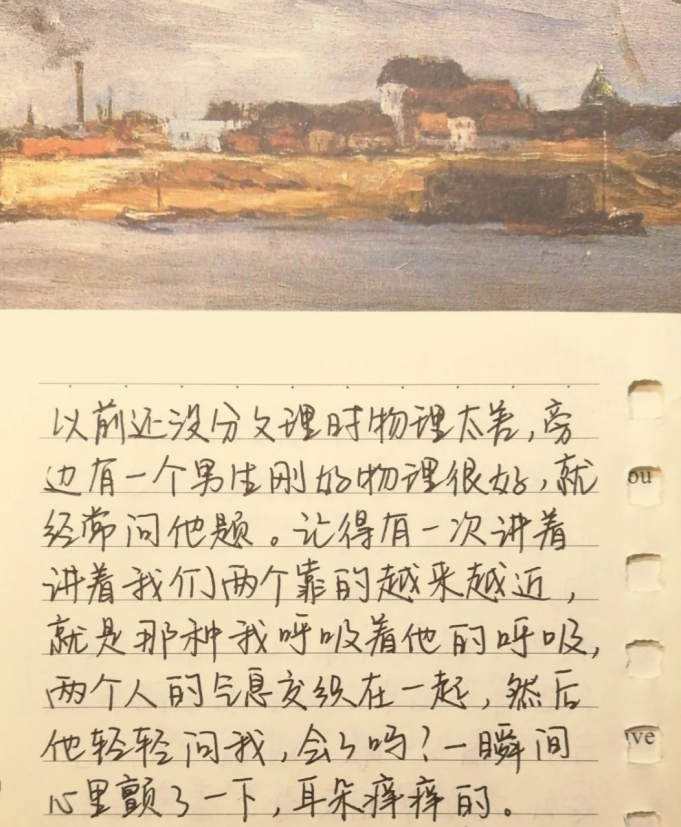 以前还没分文理时物理太差,旁
边有一个男生刚好物理很好,就
经常问他题。记得有一次讲着
讲着我们两个靠的越来越近,
就是那种我呼吸着他的呼吸,
两个人的气息交织在一起,然后
他轻轻问我,会了吗?一瞬间
心里颤了一下,耳朵痒痒的。
ou
ve